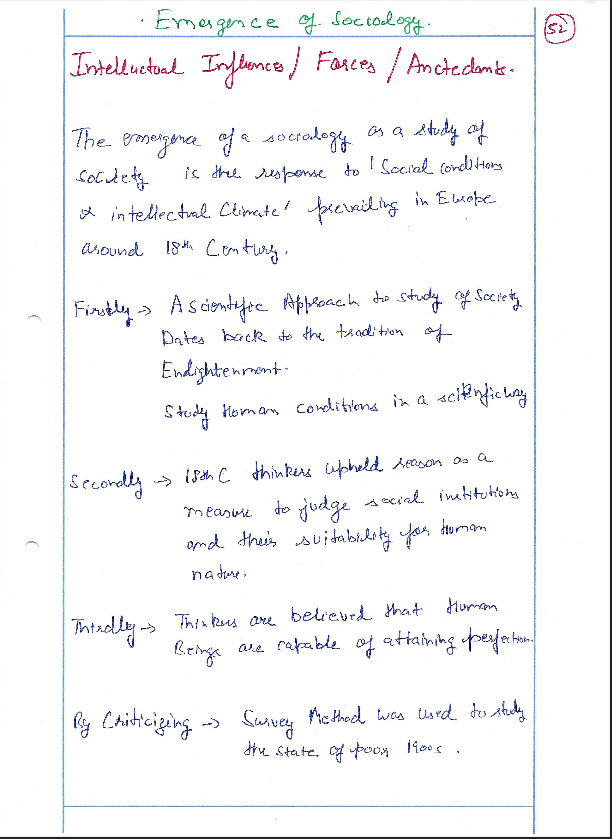 Emergence of Sociology.
52
Intelluctual Influences / Forces / Anctedants.
The emergence of a socialogy as a study of
society is the response to 'Social conditions
& intellectual Climate' prevailing in Europe
around 18th Century.
Firstly → A Scientific Approach to study of Society
Dates back to the tradition of
Endightenment.
Study Human conditions in a scientific way
Secondly → 18th C thinkers upheld reason as a
measure to judge social institutions
and their suitability for Human
nature.
Thirdly → Thinkers are believed that Human
Beings are capable of attaining perfection.
By Criticizing → Survey Method was used to study
the state of poor 1900s.